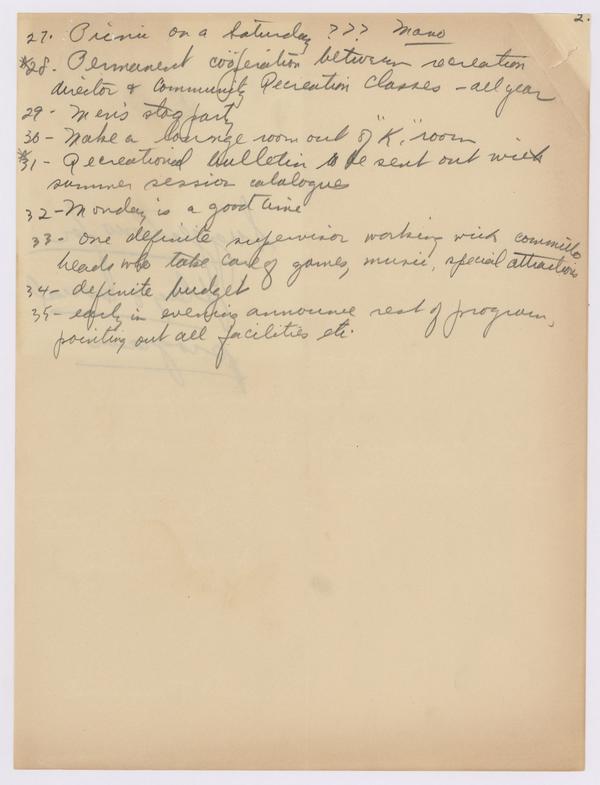 2.
27. Picnic on a Saturday ???
*28. Permanent coöperation between recreation
director & Community Recreation Classes - all year
29 - Men's stag party
30 - Make a lounge room out of "K." room
*31 - Recreational bulletin to be sent out with
summer session catalogues
32 - Monday is a good time
33 - one definite supervisor working with committee
heads who take care of games, music, special attractions
34 - definite budget
35 - early in evening announce rest of program,
pointing out all facilities etc.